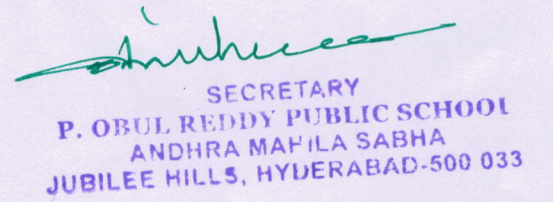 SECRETARY
P. OBUL REDDY PUBLIC SCHOOL
ANDHRA MAHILA SABHA
JUBILEE HILLS, HYDERABAD-500 033